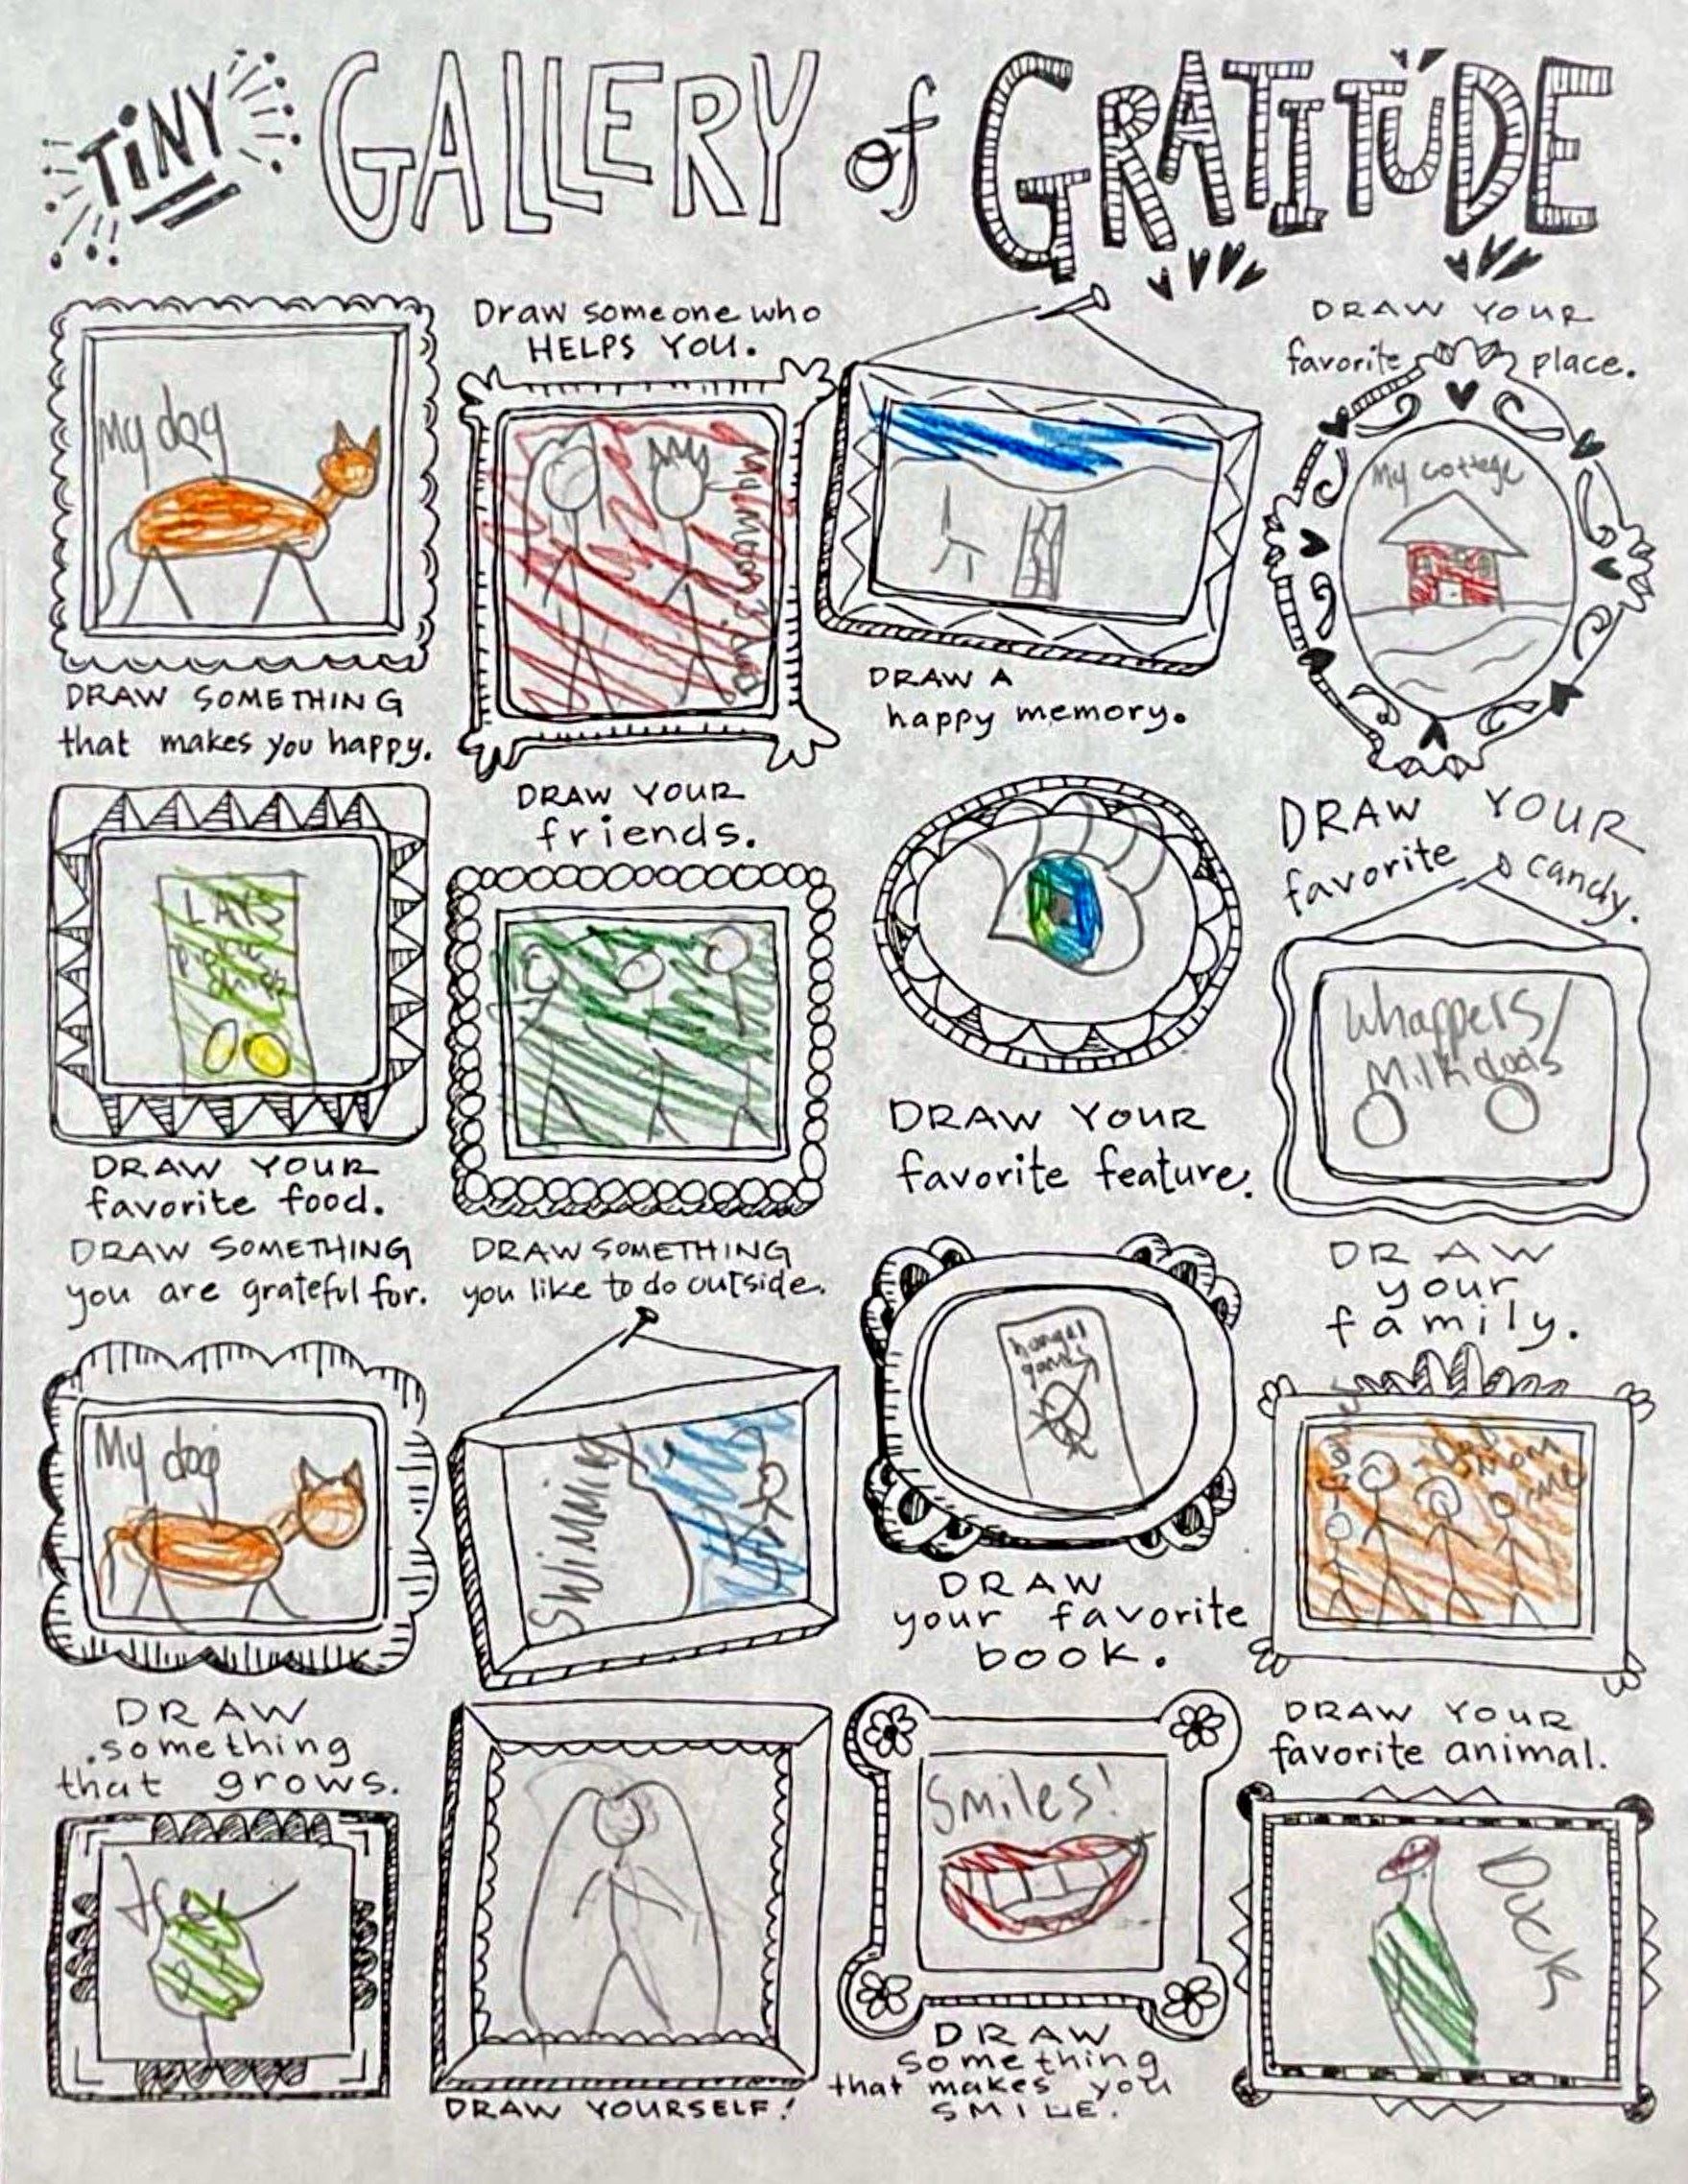 TiNY GALLERY of GRATiTUDE
My dog
DRAW SOMETHING
that makes you happy.
Draw someone who
HELPS YOU.
My Mom &
DRAW A
happy memory.
DRAW YOUR
favorite place.
My cottege
LAYS
DRAW YOUR
favorite food.
DRAW YOUR
friends.
DRAW YOUR
favorite feature.
DRAW YOUR
favorite candy.
Whappers/
Milk duds
DRAW SOMETHING
you are grateful for.
My dog
DRAW SOMETHING
you like to do outside.
SWiMMing
DRAW
your favorite
book.
DRAW
your
family.
dad
Mom
me
DRAW
something
that grows.
tree
DRAW YOURSELF!
Smiles!
DRAW
something
that makes you
SMILE.
DRAW YOUR
favorite animal.
Duck